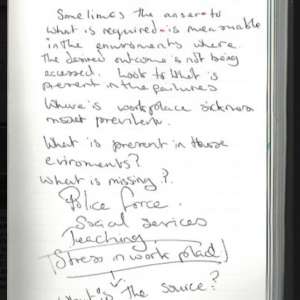 Sometimes the anser to
what is required is measurable
in the enviroments where
the desired outcome is not being
accessed. Look to what is
present in the failures
Where is workplace sickness
most prevelent.
What is present in those
eviroments?
What is missing?
Police force.
Social services
Teaching.
Stress in work place
What is the source?